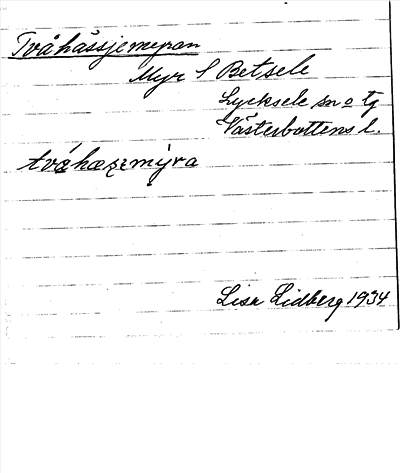 Tvåhässjemyran
Myr S Betsele
Lycksele sn o tg
Västerbottens l.
tvåhæʂɛmýra
Lisa Lidberg 1934